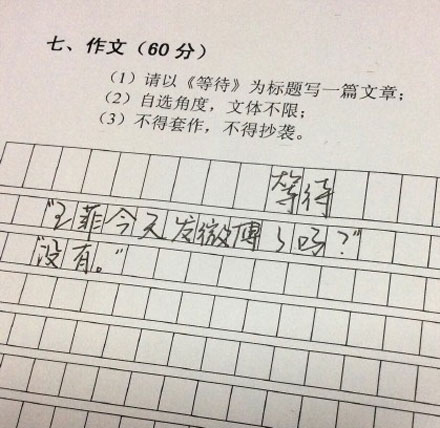 七、作文（60 分）
（1）请以《等待》为标题写一篇文章；
（2）自选角度，文体不限；
（3）不得套作，不得抄袭。
等待
“王菲今天发微博了吗？”
“没有。”